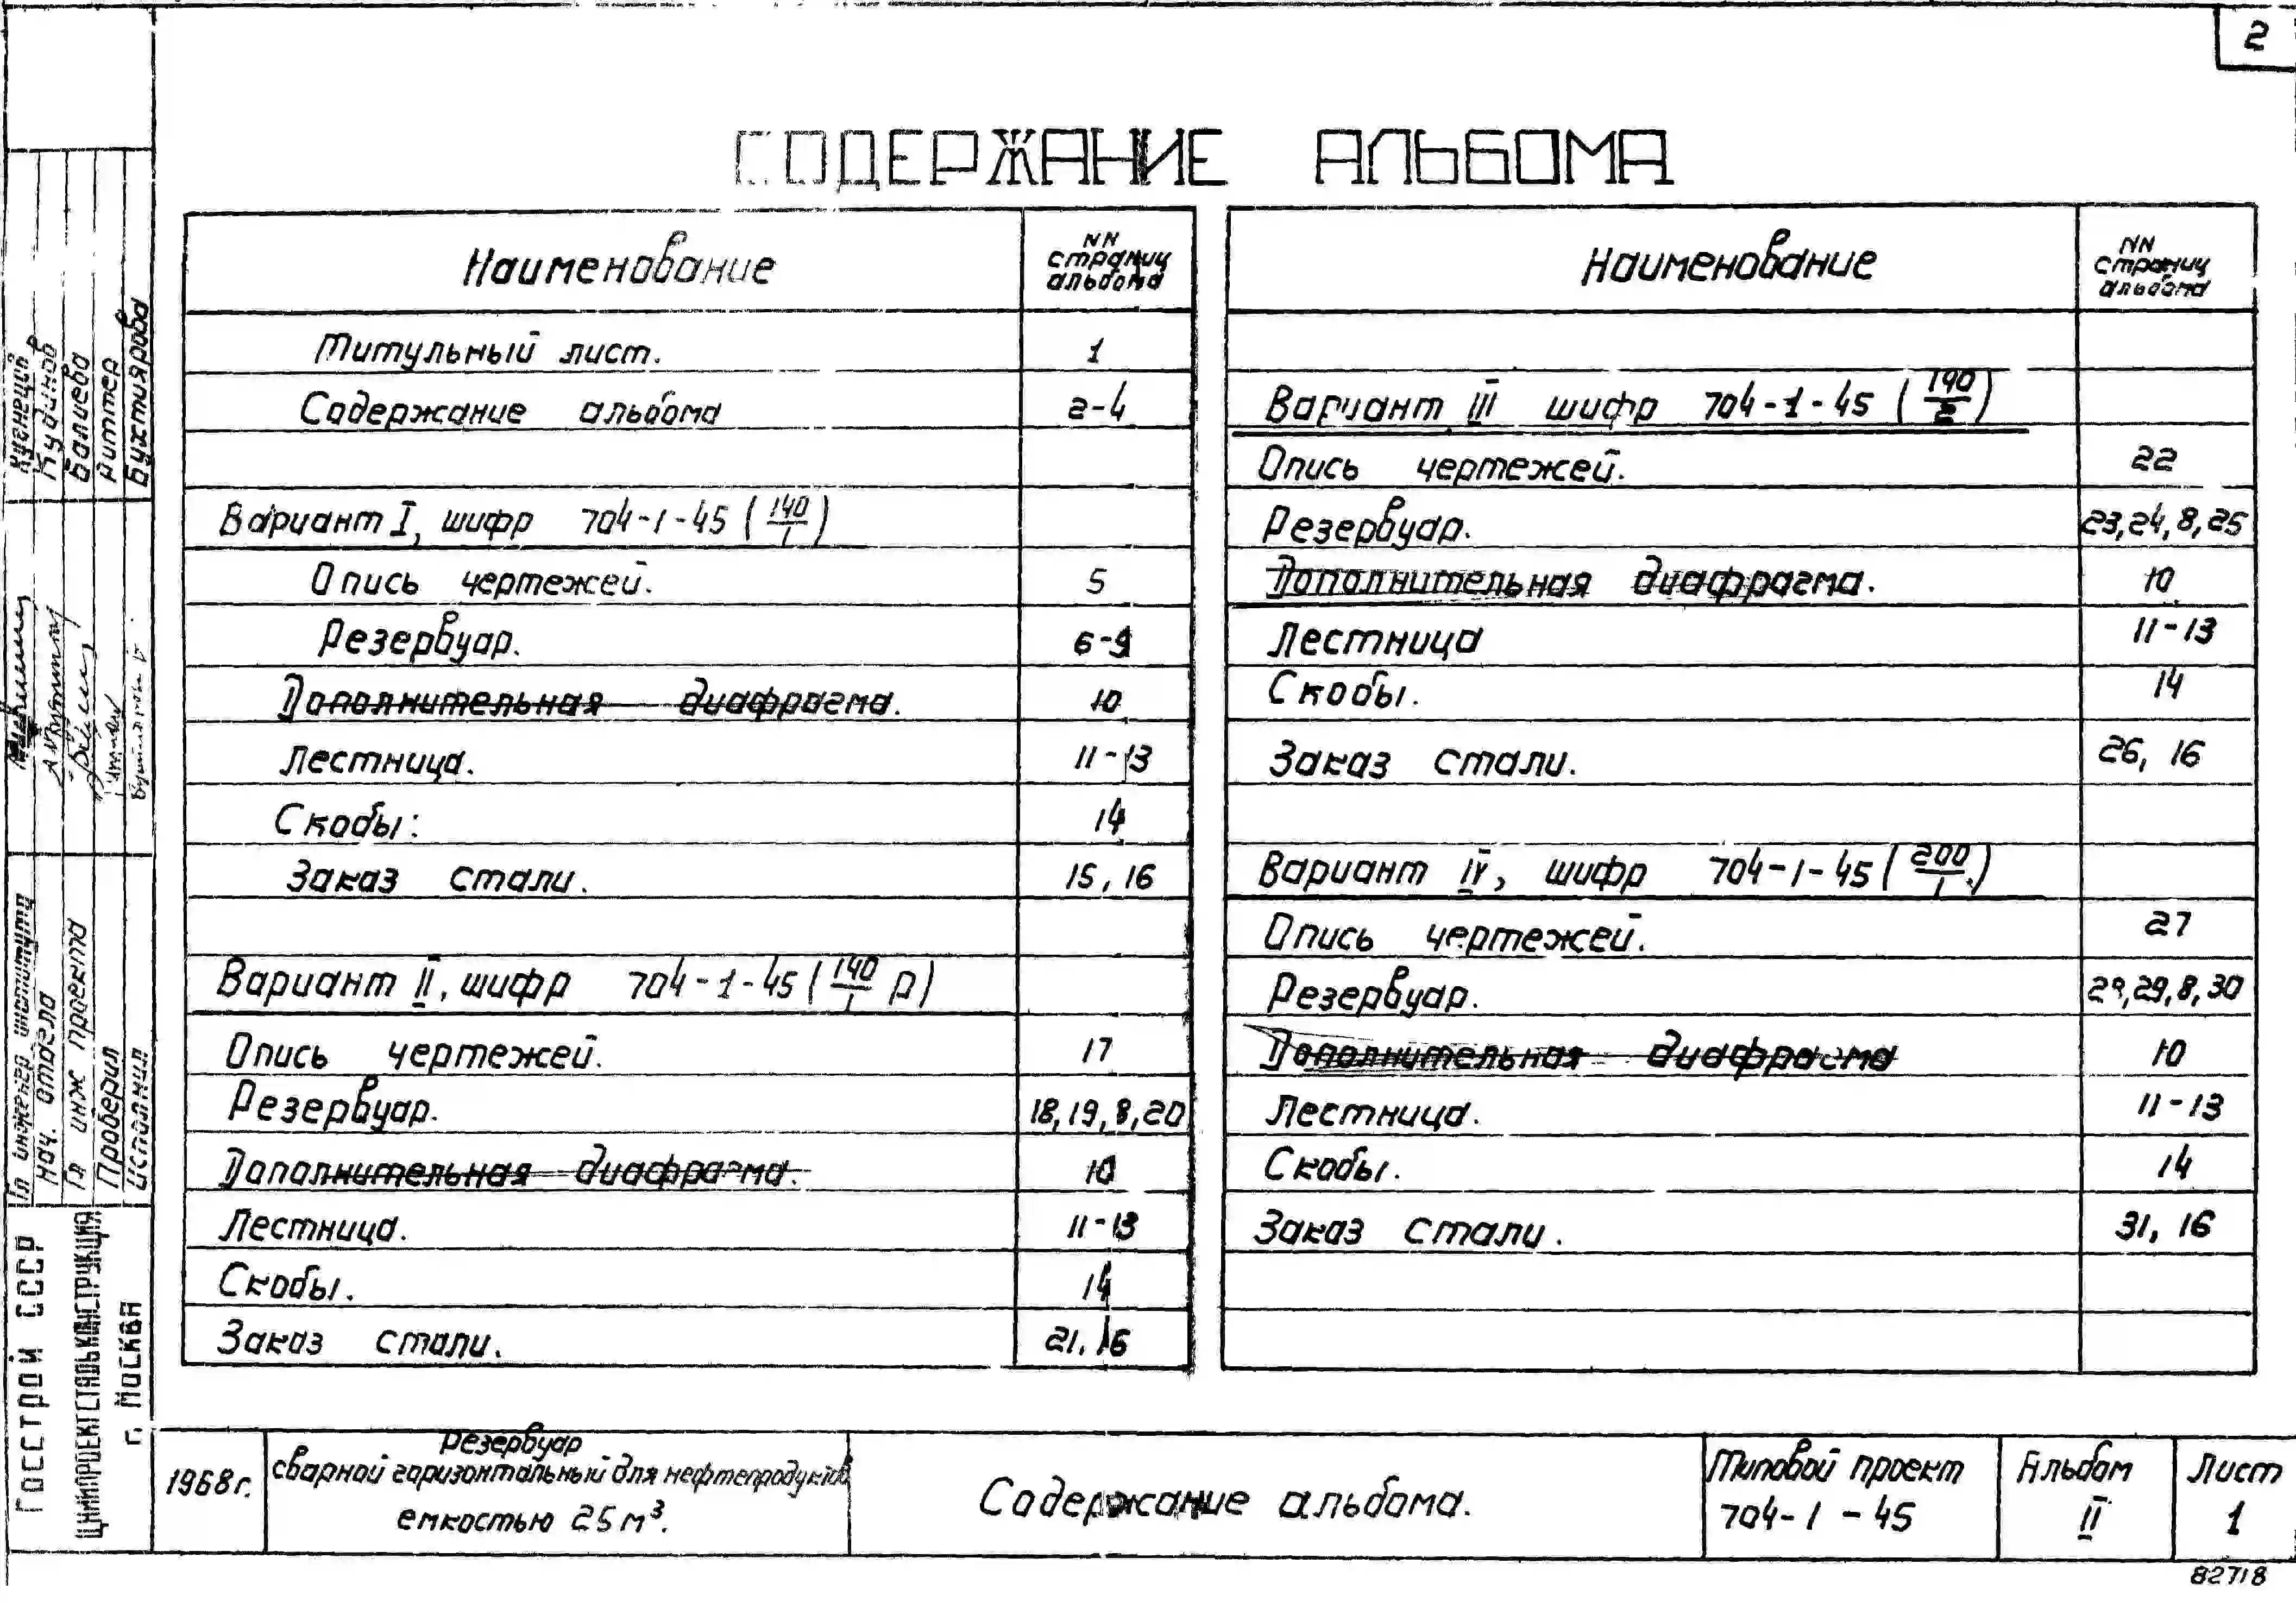 2
СОДЕРЖАНИЕ АЛЬБОМА
Наименование
NN
страниц
альбома
Титульный лист. 1
Содержание альбома 2-4
Вариант I, шифр 704-1-45 (140/1)
Опись чертежей. 5
Резервуар. 6-9
Дополнительная диафрагма. 10
Лестница. 11-13
Скобы. 14
Заказ стали. 15, 16
Вариант II, шифр 704-1-45 (140/1 Р)
Опись чертежей. 17
Резервуар. 18,19,8,20
Дополнительная диафрагма. 10
Лестница. 11-13
Скобы. 14
Заказ стали. 21, 16
Наименование
NN
страниц
альбома
Вариант III шифр 704-1-45 (140/2)
Опись чертежей. 22
Резервуар. 23,24,8,25
Дополнительная диафрагма. 10
Лестница 11-13
Скобы. 14
Заказ стали. 26, 16
Вариант IV, шифр 704-1-45 (200/1)
Опись чертежей. 27
Резервуар. 28,29,8,30
Дополнительная диафрагма 10
Лестница. 11-13
Скобы. 14
Заказ стали. 31, 16
Кузнецов
Кудинов
Валиева
Риттер
Бухтиярова
Гл инженер института
Нач. отдела
Гл инж проекта
Проверил
Исполнил
Госстрой СССР
ЦНИИПРОЕКТСТАЛЬКОНСТРУКЦИЯ
г. Москва
1968г.
Резервуар
сварной горизонтальный для нефтепродуктов
емкостью 25м³.
Содержание альбома.
Типовой проект
704-1-45
Альбом
II
Лист
1
82718